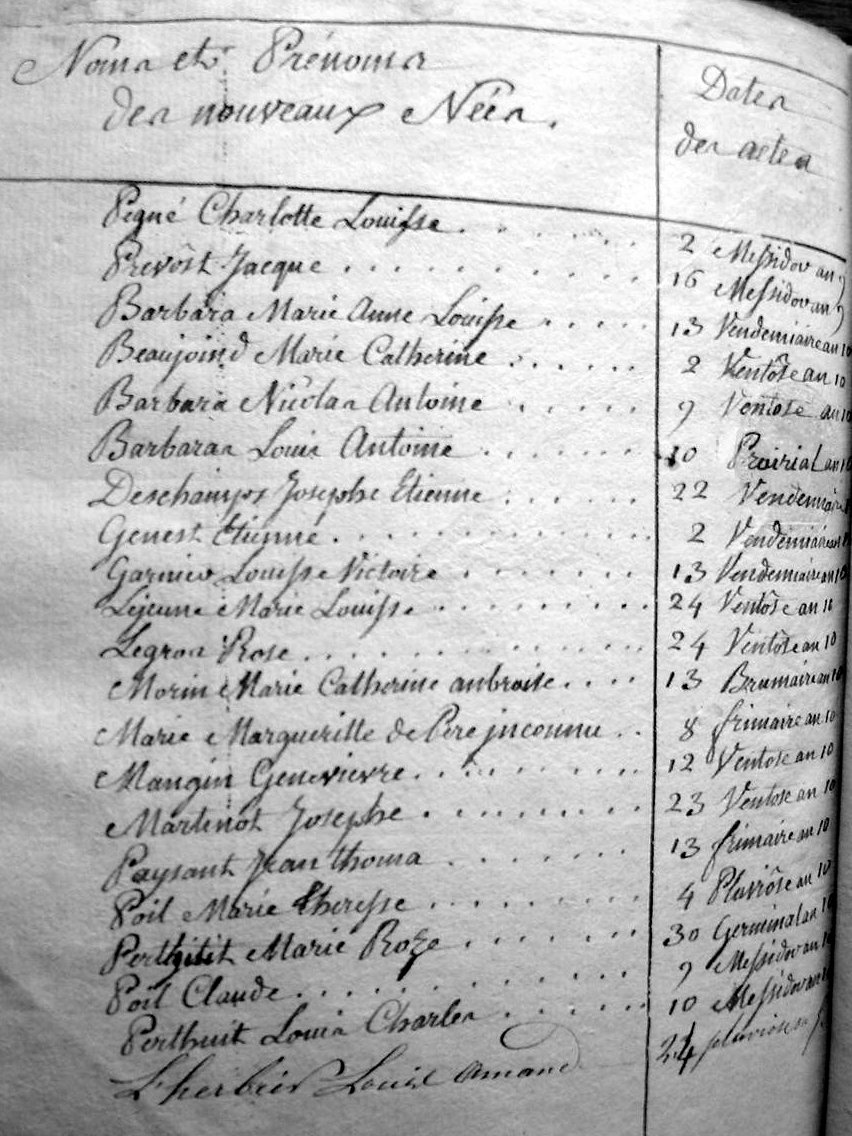 Noms et Prénoms
des nouveaux Nées.
Dates
des actes
Pegné Charlotte Louisse 2 Messidor an 9
Prevôst Jacque 16 Messidor an 9
Barbara Marie Anne Louisse 13 Vendemiaire an 10
Beaujoind Marie Catherine 2 Ventôse an 10
Barbara Nicolas Antoine 9 Ventose an 10
Barbaras Louis Antoine 10 Prairial an 10
Deschamps Josephe Etienne 22 Vendemiaire
Genest Etienne 2 Vendemiaire an 10
Garnier Louisse Victoire 13 Vendemiaire an 10
Lejeune Marie Louisse 24 Ventôse an 10
Legros Rose 24 Ventôse an 10
Morin Marie Catherine anbroise 13 Brumaire an 10
Marie Margueritte de Pere jnconnu 8 frimaire an 10
Mangin Genevievre 12 Ventose an 10
Martinot Josephe 23 Ventose an 10
Paysant Jean thoma 13 frimaire an 10
Poil Marie theresse 4 Pluviôse an 10
Perthuit Marie Roze 30 Germinal an 10
Poil Claude 9 Messidor an 10
Perthuit Louis Charles 10 Messidor an
L'herbier Louise Amand 24 pluviose